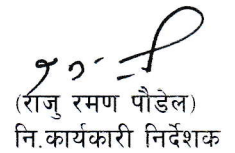 (राजु रमण पौडेल)
नि.कार्यकारी निर्देशक